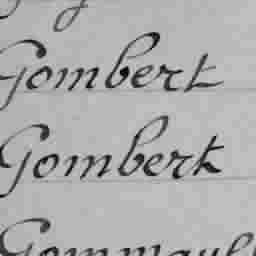 Gombert
Gomberk